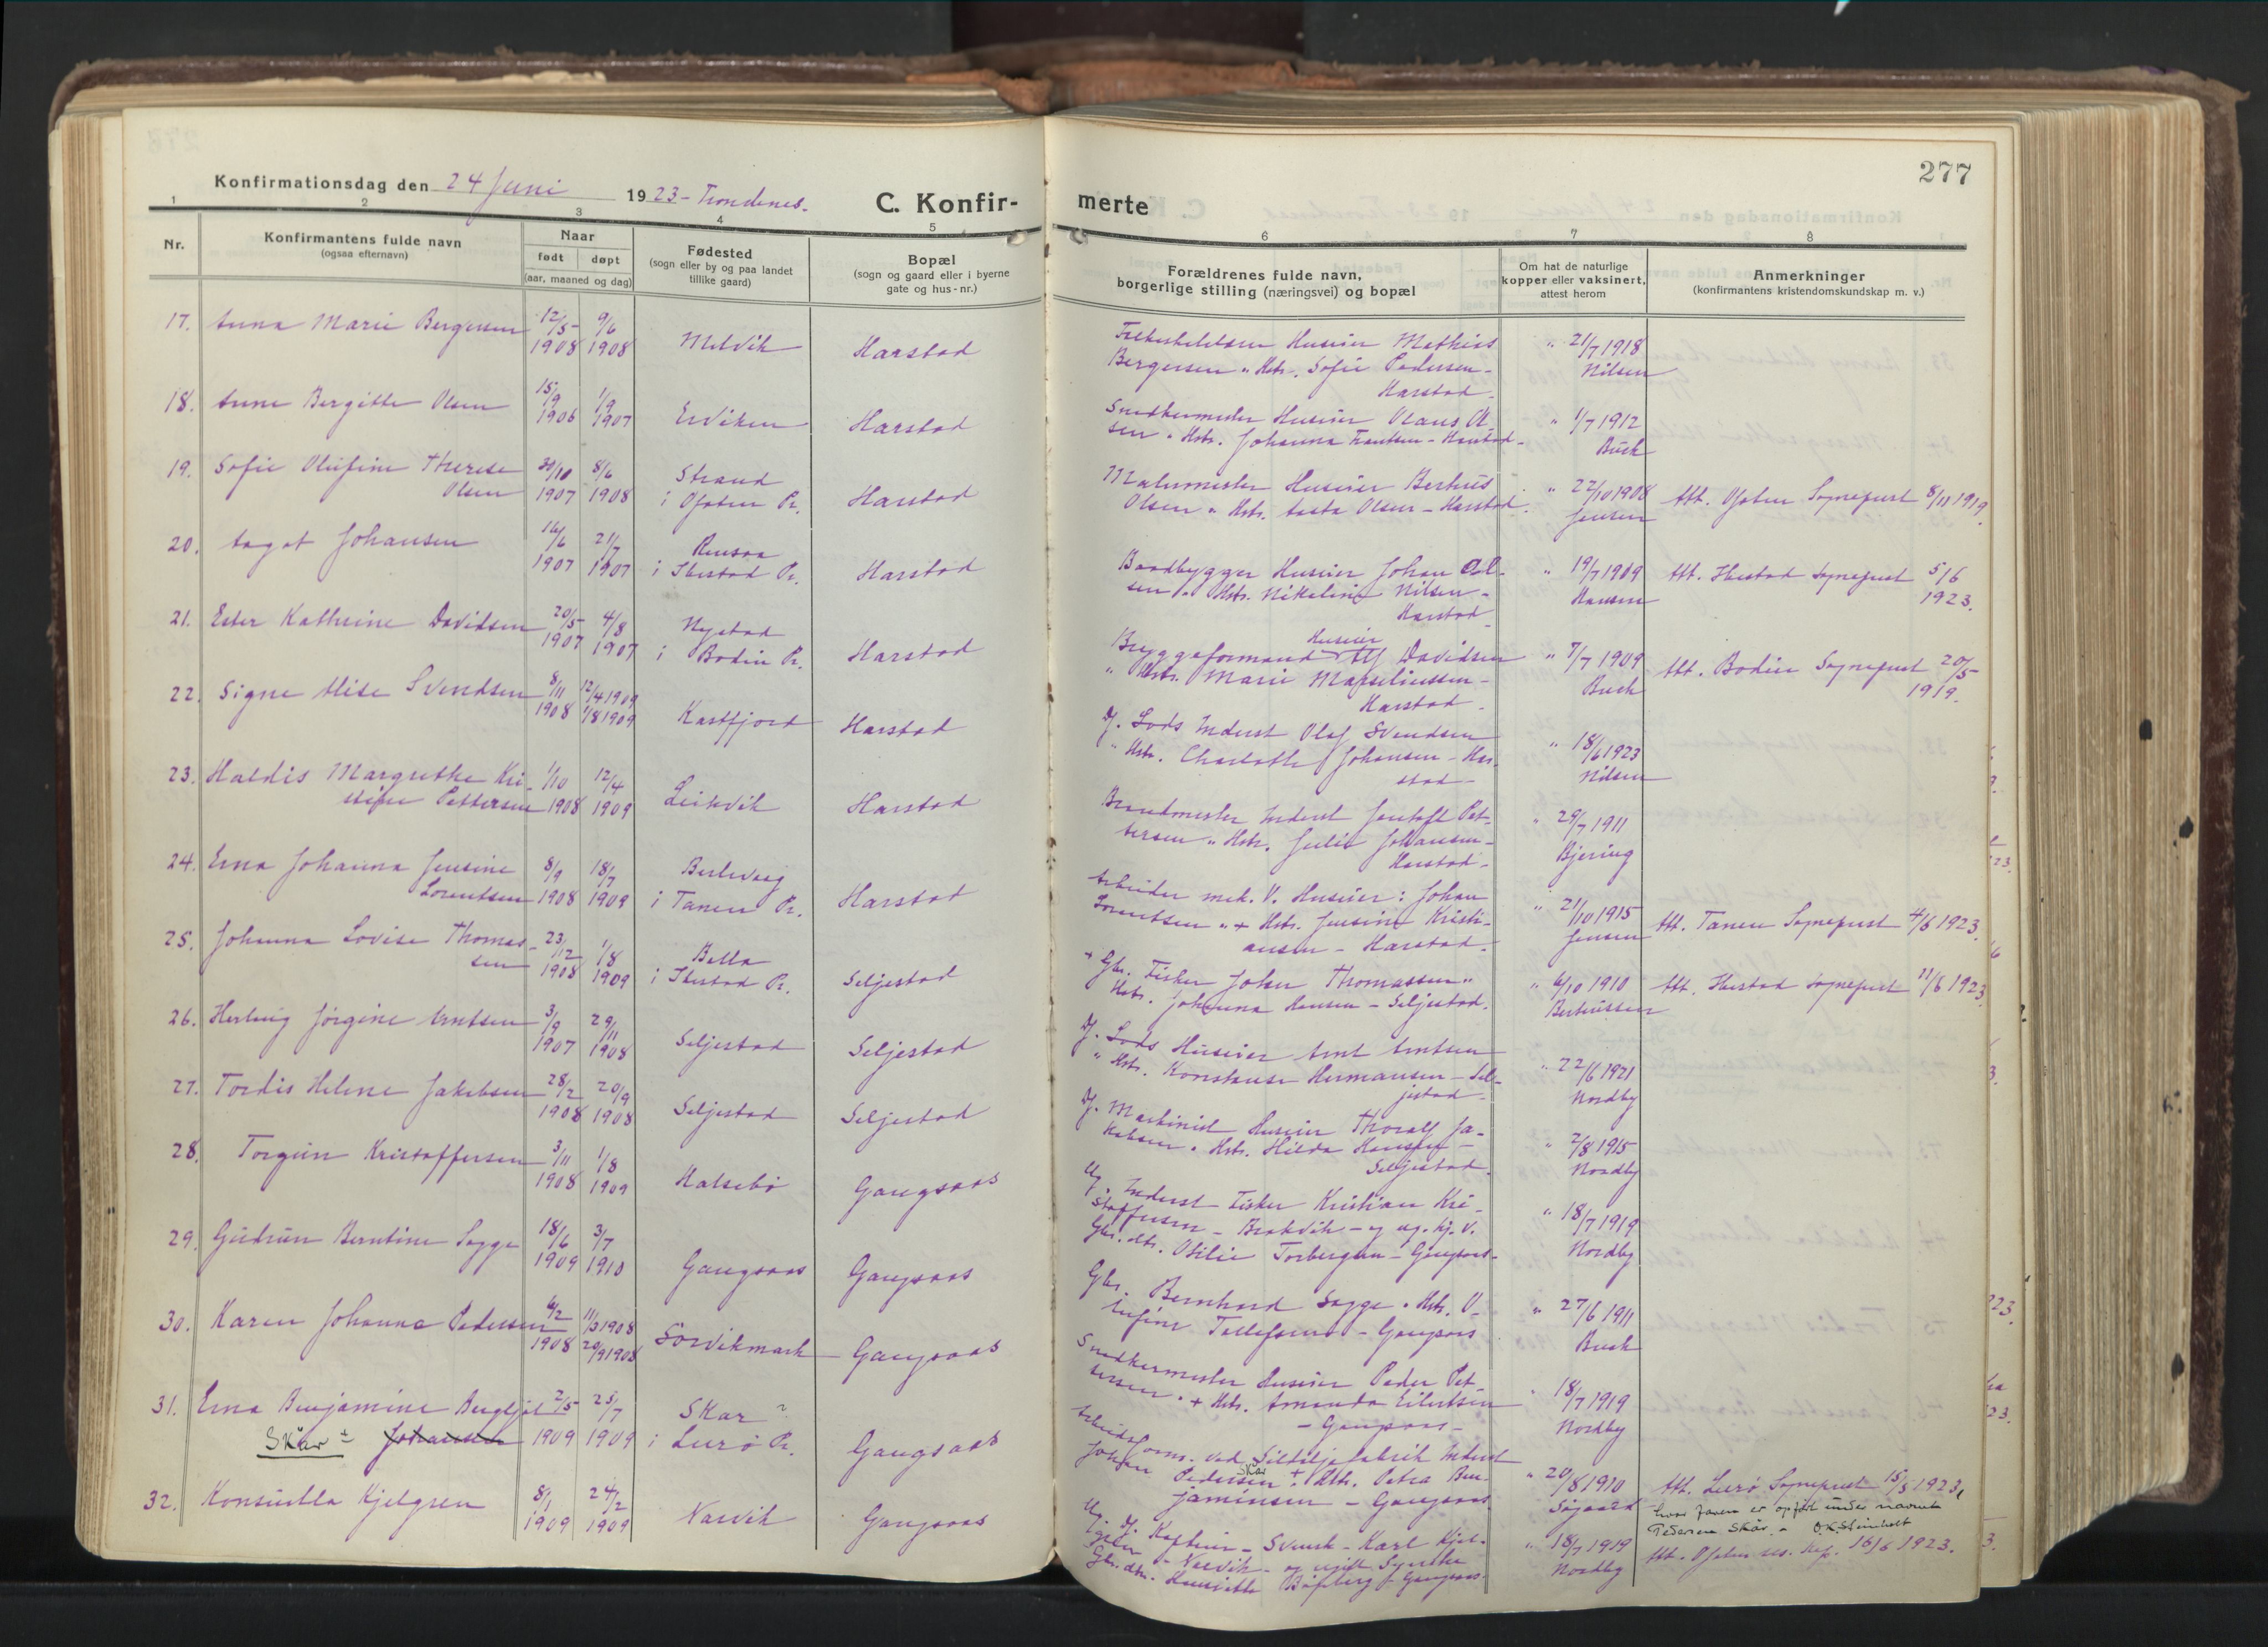 277
Konfirmationsdag den 24 Juni 1923 - Trondenes.
C. Konfir-
merte
1 2 3 4 5 6 7 8
Nr.
Konfirmantens fulde navn
(ogsaa efternavn)
Naar
født døpt
(aar, maaned og dag)
Fødested
(sogn eller by og paa landet
tillike gaard)
Bopæl
(sogn og gaard eller i byerne
gate og hus-nr.)
Forældrenes fulde navn,
borgerlige stilling (næringsvei) og bopæl
Om hat de naturlige
kopper eller vaksinert,
attest herom
Anmerkninger
(konfirmantens kristendomskundskap m. v.)
17. Anna Marie Bergersen 12/5 1908 9/6 1908 Melvik Harstad
Huseier Mathias
Bergersen " Hstr. Sofie Pedersen -
Harstad
" 21/7 1918
Nilsen
18. Anne Bergitte Olsen 15/9 1906 1/9 1907 Erviken Harstad
Snedkermester Huseier Olaus Ol-
sen " Hstr. Johanna Frantsen - Harstad -
" 1/7 1912
Buck
19. Sofie Olufine Therese
Olsen 30/10 1907 8/6 1908 Strand
i Ofoten Pr. Harstad
Malermester Huseier Berteus
Olsen " Hstr. Aasta Olsen - Harstad.
" 22/10 1908
Jensen
Att. Ofoten Sogneprest 8/11 1919.
20. Aagot Johansen 16/6 1907 21/7 1907 Rensaa
i Ibestad Pr. Harstad
Baadbygger Huseier Johan Ol-
sen " Hstr. Nikoline Nilsen -
Harstad
" 19/7 1909
Hansen
Att. Ibestad Sogneprest 5/6
1923.
21. Ester Kathrine Davidsen 20/5 1907 4/8 1907 Nystad
i Bodin Pr. Harstad
Huseier
Bryggeformand Alf Davidsen
" Hstr. Marie Marseliussen -
Harstad.
" 7/7 1909
Buck
Att. Bodin Sogneprest 20/5
1919.
22. Signe Alise Svendsen 8/11 1908 12/4 1909 1/8 1909 Kastfjord Harstad
Lods Inderst Olaf Svendsen
" Hstr. Charlotte Johansen - Har-
stad -
" 18/6 1923
Nilsen
23. Haldis Margrethe Kri-
stine Pettersen 1/10 1908 12/4 1909 Leikvik Harstad
Brandmester Inderst Jentoft Pet-
tersen " Hstr. Julie Johansen -
Harstad -
" 29/7 1911
Bjering
24. Erna Johanna Jensine
Lorentsen 8/9 1908 18/7 1909 Berlevaag
i Tanen Pr. Harstad
Arbeider mek. V. Huseier: Johan
Lorentsen " + Hstr. Jensine Kristi-
ansen - Harstad.
" 21/10 1915
Jensen
Att. Tanen Sogneprest 4/6 1923.
25. Johanna Lovise Thomas-
sen 23/12 1908 1/8 1909 Bolla
i Ibestad Pr. Seljestad
+ Gbr. Fisker Johan Thomassen "
Hstr. Johanna Hansen - Seljestad.
" 6/10 1910
Berteussen
Att. Ibestad Sogneprest 11/6 1923.
26. Herborg Jørgine Arntsen 3/9 1907 29/11 1908 Seljestad Seljestad
Lods Huseier Arnt Arntsen
" Hstr. Konstanse Hermansen - Sel-
jestad -
" 22/6 1921
Nordby
27. Tordis Helene Jakobsen 28/2 1908 20/9 1908 Seljestad Seljestad
Maskinist Huseier Thoralf Ja-
kobsen " Hstr. Hilda Hansen -
Seljestad.
" 2/8 1915
Nordby
28. Torgun Kristoffersen 3/11 1908 1/8 1909 Halsebø Gangsaas
Ug. Inderst Fisker Kristian Kri-
stoffersen - Brokvik - og ug. hj. v.
Gbr. dtr. Otilie Torbergsen - Gangsaas -
" 18/7 1919
Nordby
29. Gudrun Berntine Sagge 18/6 1909 3/7 1910 Gangsaas Gangsaas
Gbr. Bernhard Sagge " Hstr. O-
lufine Tollefsen - Gangsaas
" 27/6 1911
Buck
30. Karen Johanna Pedersen 6/2 1908 11/3 1908 20/9 1908 Sørvikmark Gangsaas
Snedkermester Huseier Peder Pet-
tersen " + Hstr. Amanda Eilertsen
- Gangsaas -
" 18/7 1919
Nordby
31. Erna Benjamine Bergljot
Skår Johansen 2/5 1909 25/7 1909 Skar ?
i Lurø Pr. Gangsaas
Arbeidsform. ved Sildoljefabrik Inderst
Johan Pedersen Skår + Hstr. Petra Ben-
jaminsen - Gangsaas
" 20/8 1910
Søgaard
Att. Lurø Sogneprest 15/5 1923,
hvor faren er opført under navnet
Pedersen Skår.
32. Konsuella Kjelgren 8/1 1909 24/2 1909 Narvik Gangsaas
Ug. Kaptein - Svensk - Karl Kjel-
gren - Narvik - og ugift Syerske
Gbr. dtr. Henriette - Gangsaas
" 18/7 1919
Nordby
Att. Ofoten res. kap. 16/6 1923.